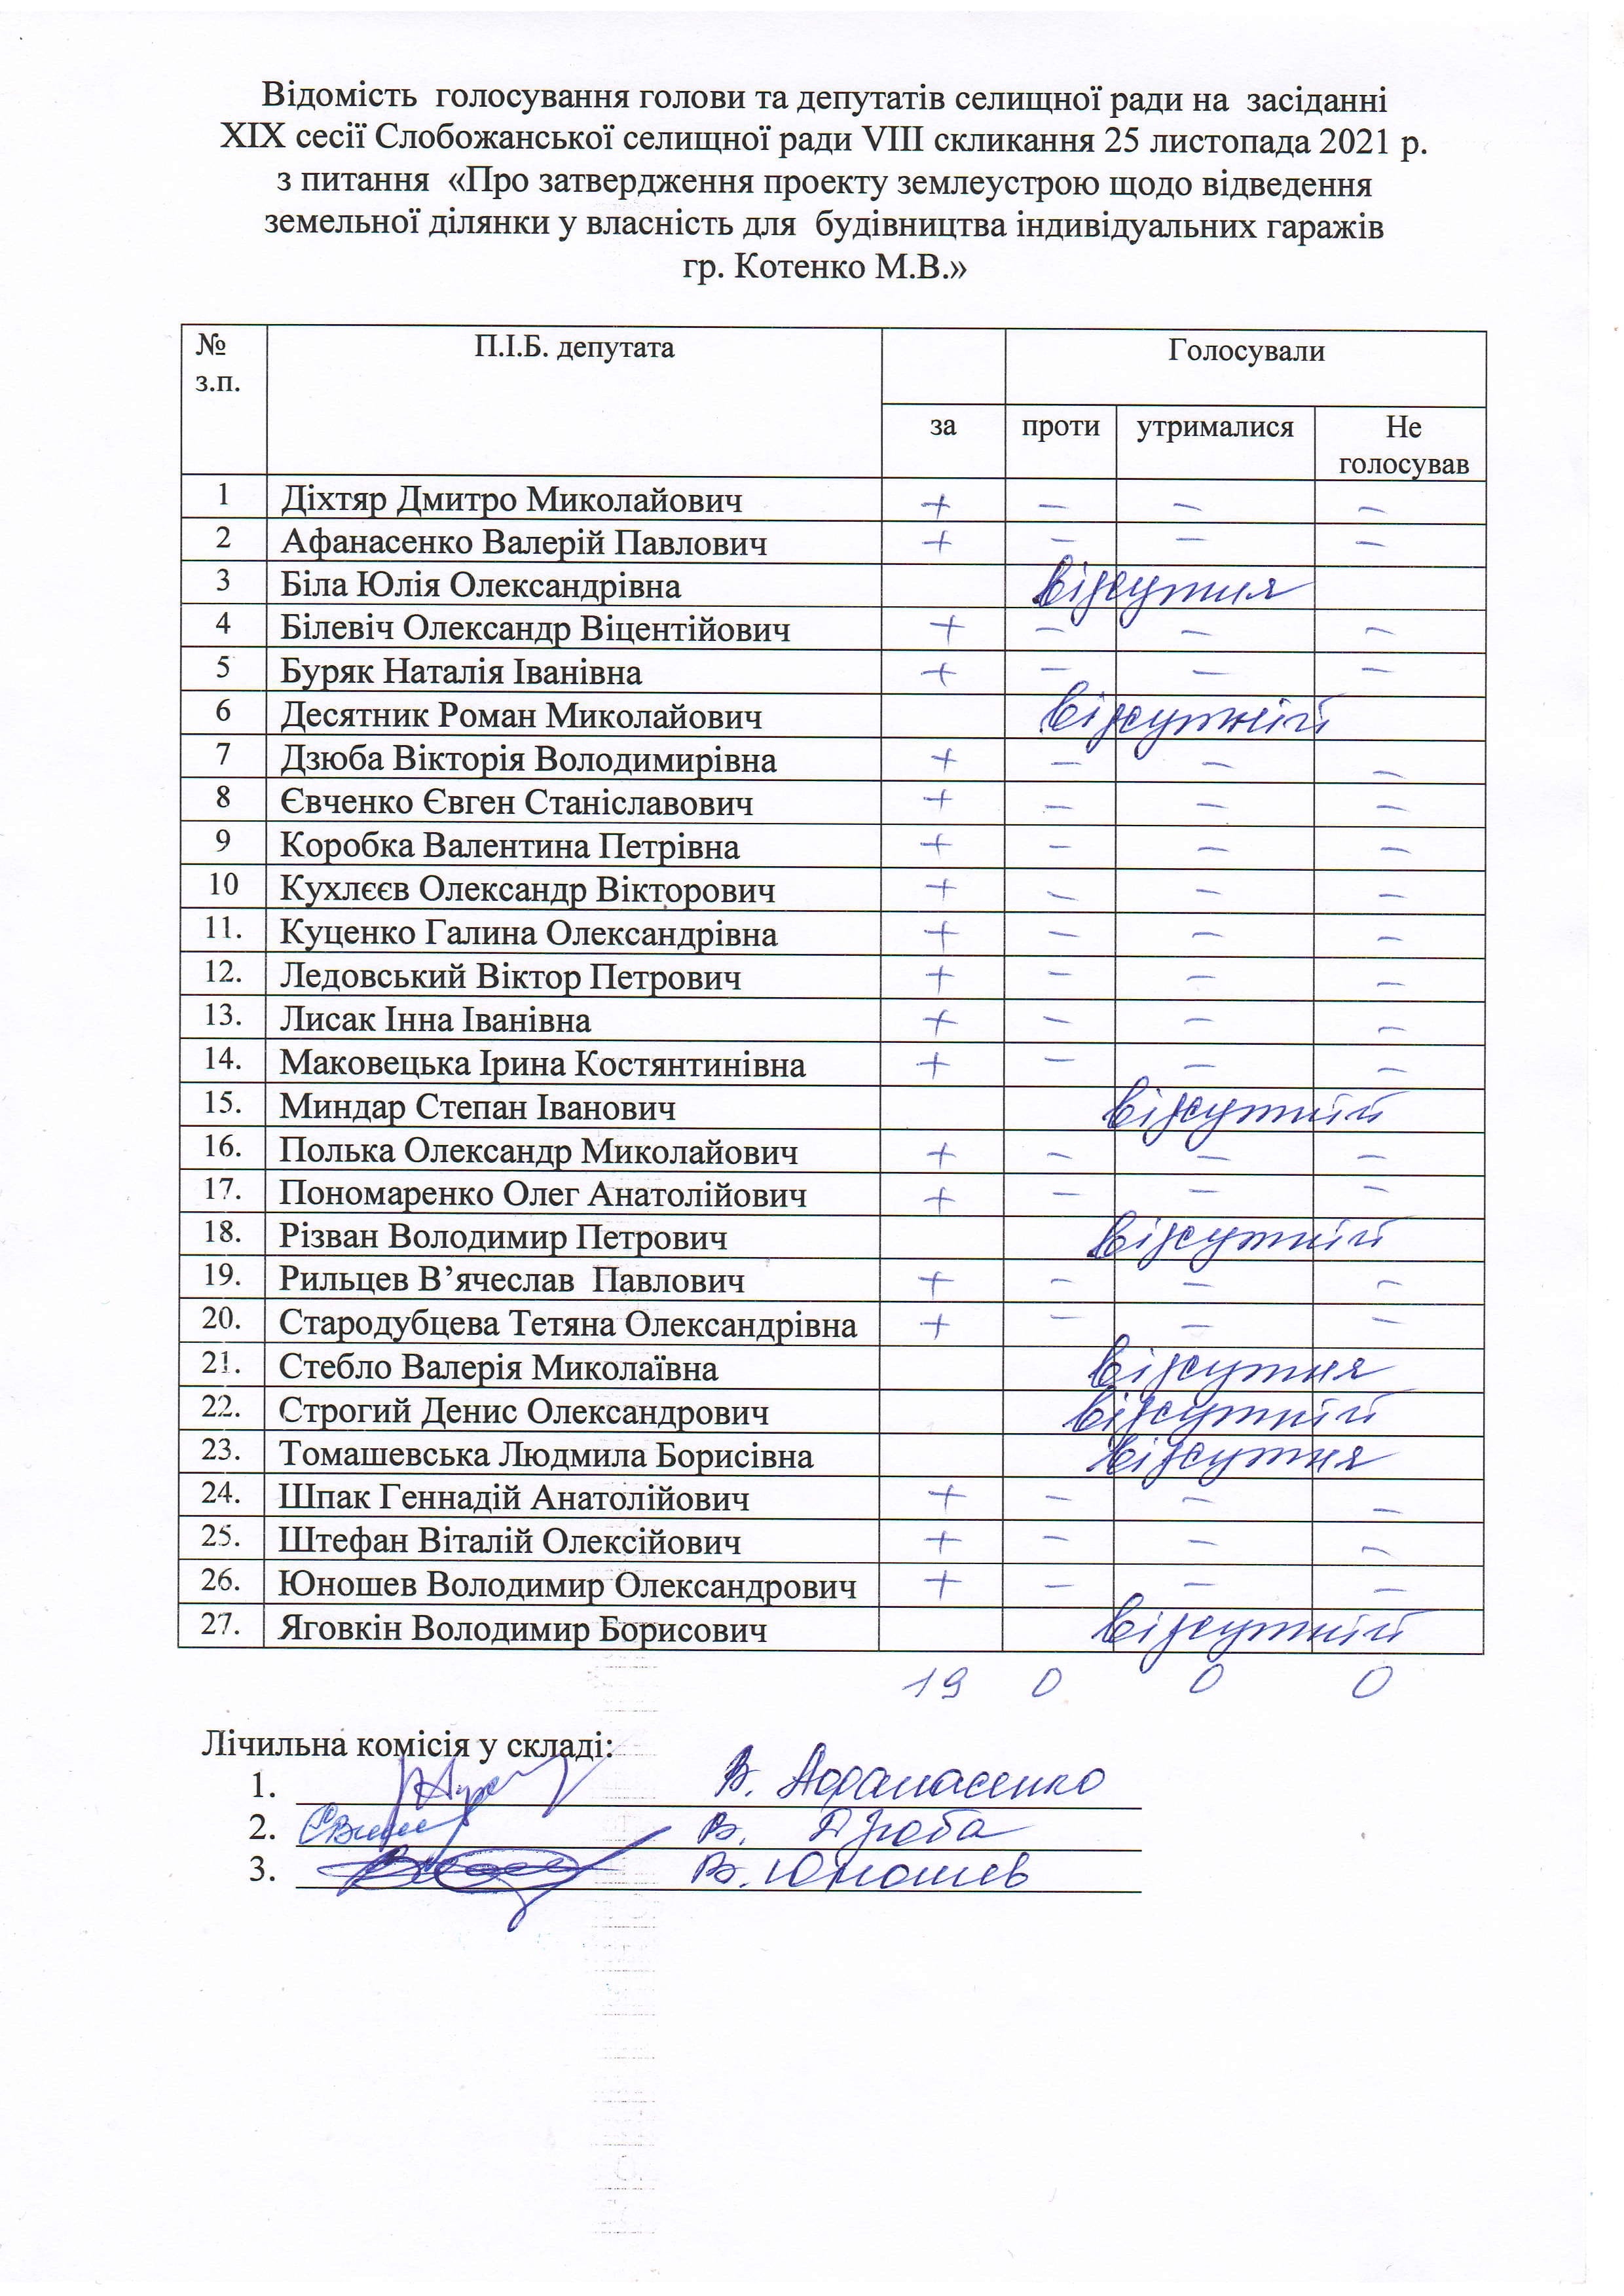 Відомість голосування голови та депутатів селищної ради на засіданні
XIX сесії Слобожанської селищної ради VIII скликання 25 листопада 2021 р.
з питання «Про затвердження проекту землеустрою щодо відведення
земельної ділянки у власність для будівництва індивідуальних гаражів
гр. Котенко М.В.»
№ з.п. П.І.Б. депутата Голосували
за проти утрималися Не голосував
1 Діхтяр Дмитро Миколайович + – – –
2 Афанасенко Валерій Павлович + – – –
3 Біла Юлія Олександрівна відсутня
4 Білевіч Олександр Віцентійович + – – –
5 Буряк Наталія Іванівна + – – –
6 Десятник Роман Миколайович відсутній
7 Дзюба Вікторія Володимирівна + – – –
8 Євченко Євген Станіславович + – – –
9 Коробка Валентина Петрівна + – – –
10 Кухлєєв Олександр Вікторович + – – –
11. Куценко Галина Олександрівна + – – –
12. Ледовський Віктор Петрович + – – –
13. Лисак Інна Іванівна + – – –
14. Маковецька Ірина Костянтинівна + – – –
15. Миндар Степан Іванович відсутній
16. Полька Олександр Миколайович + – – –
17. Пономаренко Олег Анатолійович + – – –
18. Різван Володимир Петрович відсутній
19. Рильцев В’ячеслав Павлович + – – –
20. Стародубцева Тетяна Олександрівна + – – –
21. Стебло Валерія Миколаївна відсутня
22. Строгий Денис Олександрович відсутній
23. Томашевська Людмила Борисівна відсутня
24. Шпак Геннадій Анатолійович + – – –
25. Штефан Віталій Олексійович + – – –
26. Юношев Володимир Олександрович + – – –
27. Яговкін Володимир Борисович відсутній
19 0 0 0
Лічильна комісія у складі:
1. В. Афанасенко
2. В. Дзюба
3. В. Юношев